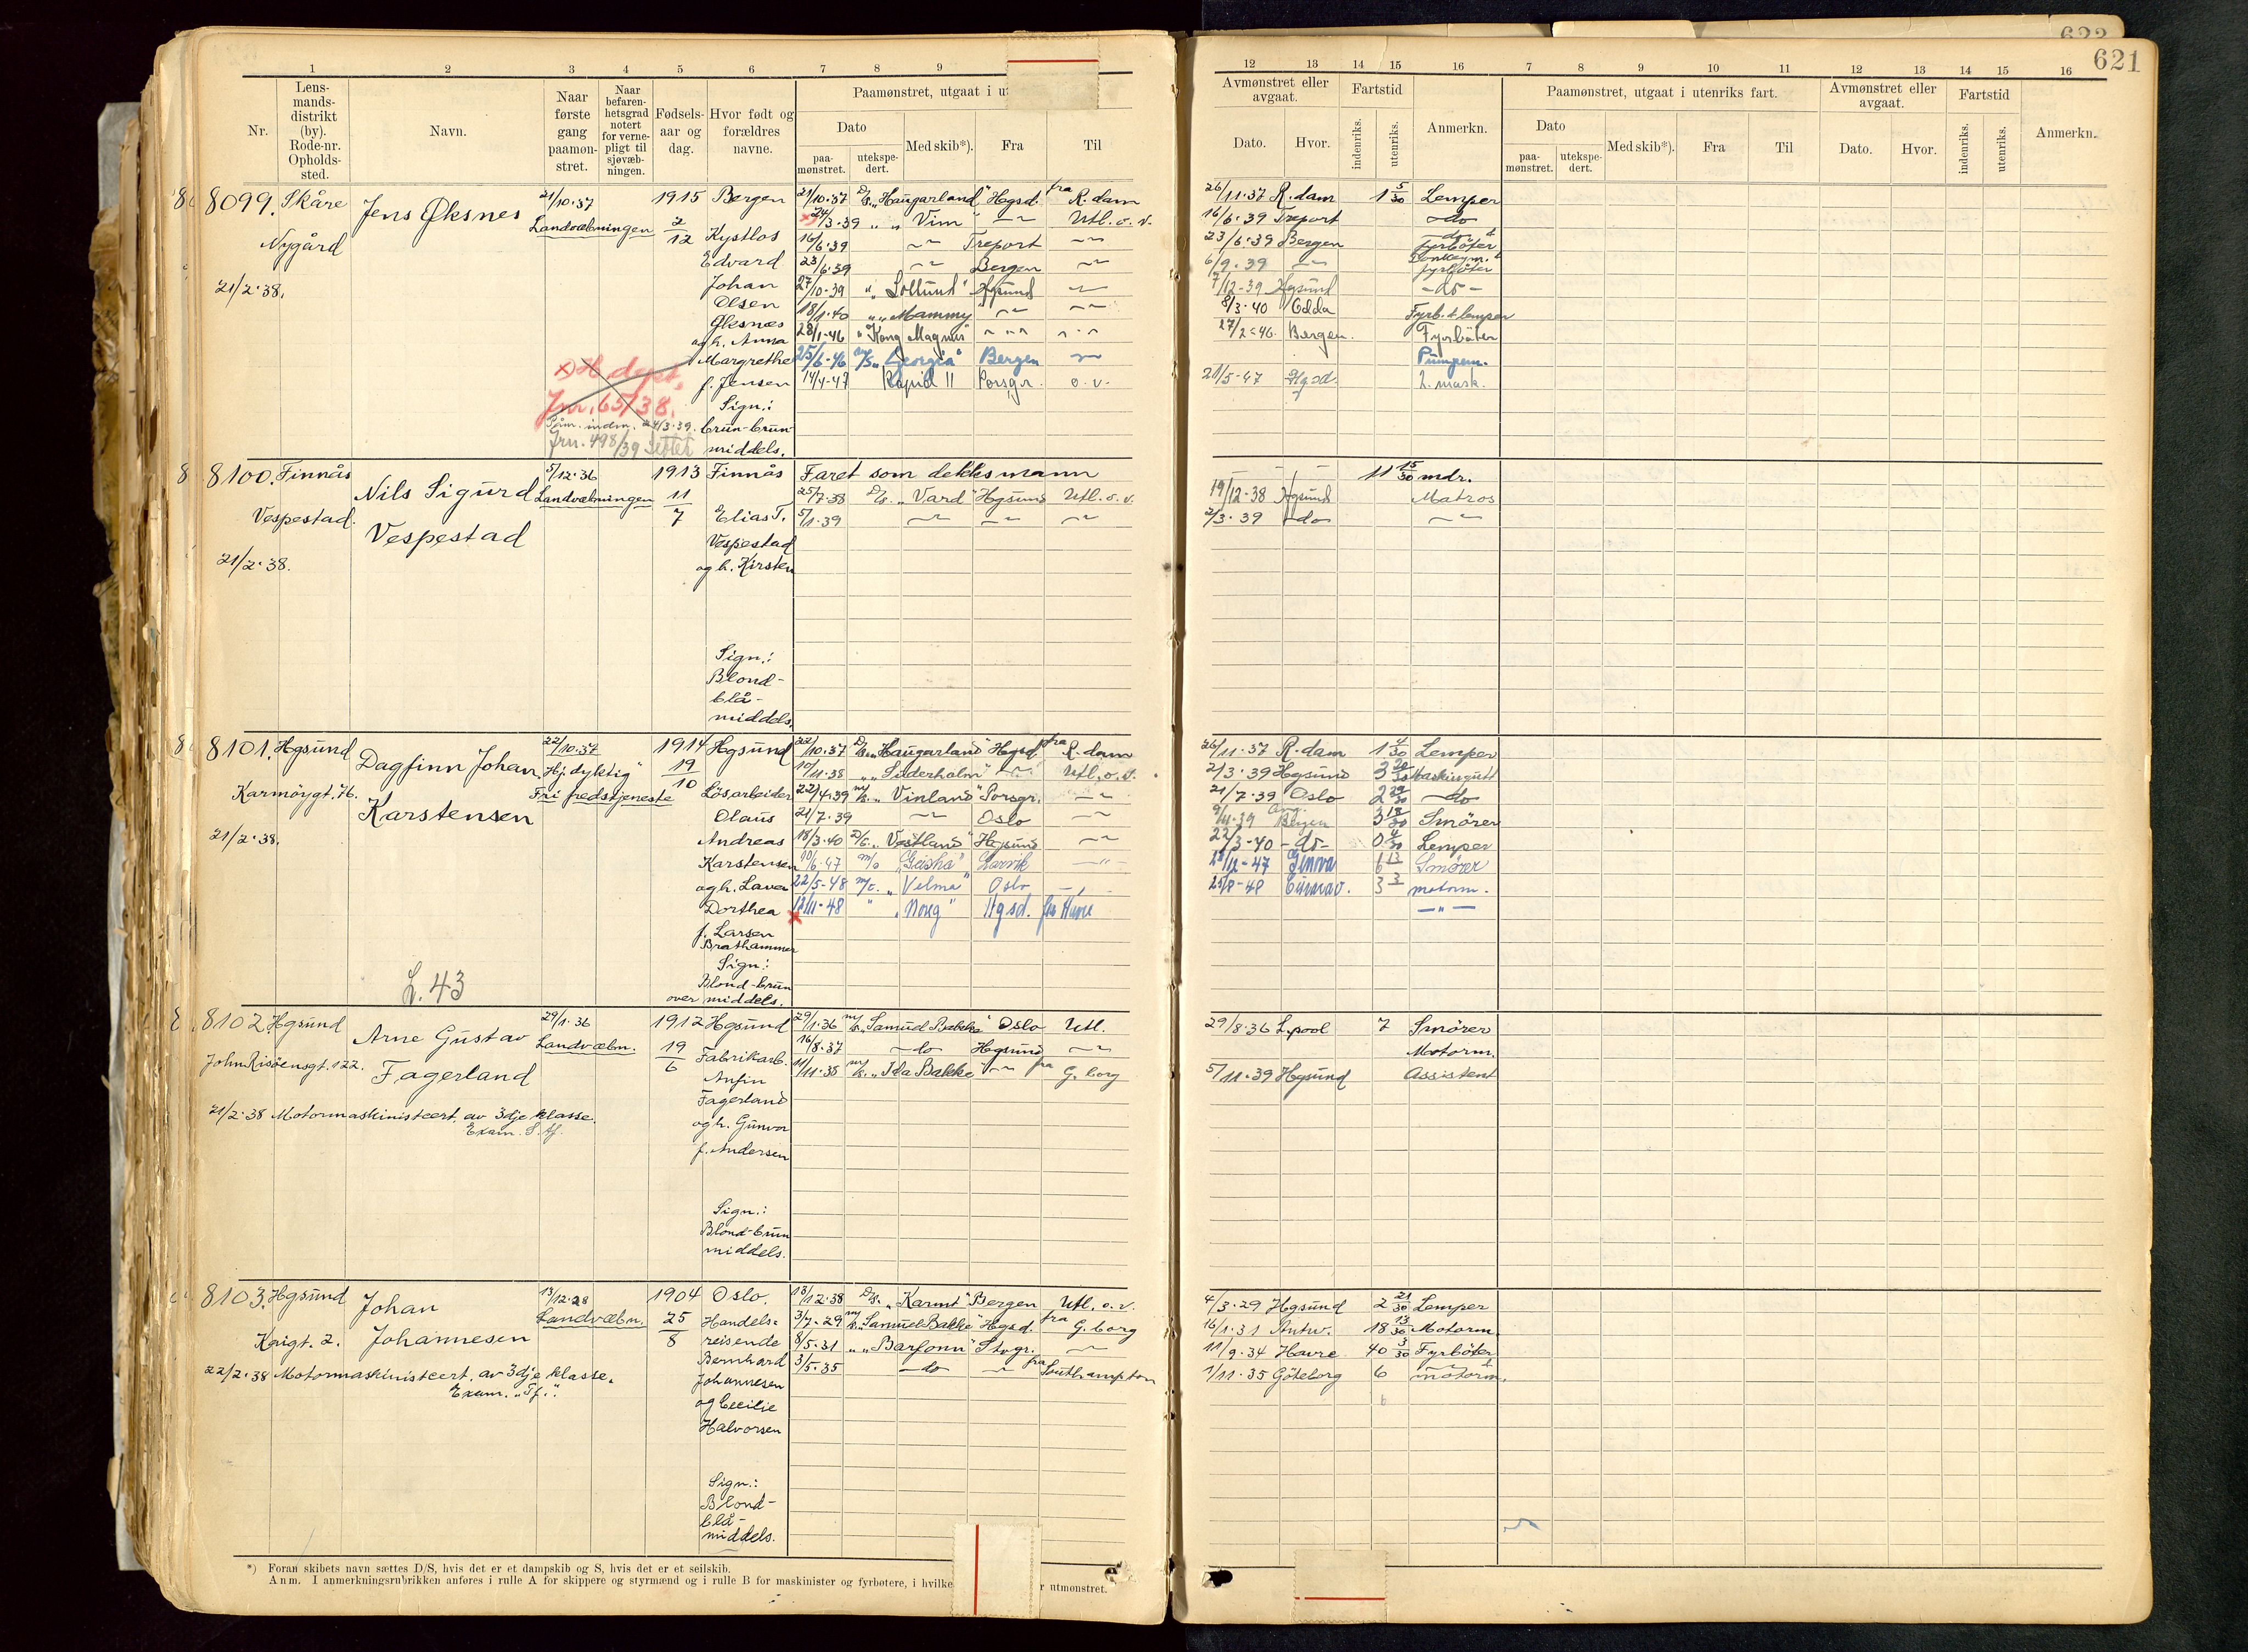 622
621
1 2 3 4 5 6 7 8 9
12 13 14 15 16 7 8 9 10 11 12 13 14 15 16
Nr.
Lens-
mands-
distrikt
(by).
Rode-nr.
Opholds-
sted.
Navn.
Naar
første
gang
paamøn-
stret.
Naar
befaren-
hetsgrad
notert
for verne-
pligt til
sjøvæb-
ningen.
Fødsels-
aar og
dag.
Hvor født og
forældres
navne.
Paamønstret, utgaat i
Dato
paa-
mønstret.
utekspe-
dert.
Med skib*).
Fra
Til
Avmønstret eller
avgaat.
Dato.
Hvor.
Fartstid
indenriks.
utenriks.
Anmerkn.
Paamønstret, utgaat i utenriks fart.
Dato
paa-
mønstret.
utekspe-
dert.
Med skib*).
Fra
Til
Avmønstret eller
avgaat.
Dato.
Hvor.
Fartstid
indenriks.
utenriks.
Anmerkn.
8099. Skåre
Nygård
21/2.38.
Jens Øksnes
21/10.37
Landvæbningen
1915
2/12
Bergen
Kystlos
Edvard
Johan
Olsen
Øksnæs
og h. Anna
Margrethe
f. Jensen
Sign.:
brun-brun
middels.
x) H. dept.
Jnr. 65/38.
Jnr. 498/39 slettet
21/10.37 D/S. "Haugarland" Hgsd. fra R.dam 26/11.37 R.dam 1 5/30 Lemper
24/3.39 " " Vim " Utl. o. v. 16/6.39 Treport -do-
16/6.39 Treport 23/6.39 Bergen
23/6.39 Bergen 6/9.39
27/10.39 " "Sollund" Hgsund 7/12-39 Hgsund -do-
18/1.40 " "Mammy 8/3.40 Odda Fyrb. & lemper
28/1-46 "Kong Magnus" 27/2-46. Bergen. Fyrböter
25/6-46 M/S "Georgia" Bergen Pumpem.
14/4-47 Rapid II Porsgr. o. v. 21/5-47 Hgsd. 2. mask.
8100. Finnås
Vespestad.
21/2.38.
Nils Sigurd
Vespestad
5/12.36
Landvæbningen
1913
11/7
Finnås
Elias T.
Vespestad
og h. Kirsten
Sign.:
Blond-
blå-
middels.
Faret som dekksmann 11 15/30 mdr.
25/7.38 D/S. "Vard" Hgsund Utl. o. v. 19/12-38 Hgsund Matros
5/1.39 2/3.39 -do-
8101. Hgsund
Karmöygt. 76.
21/2.38.
Dagfinn Johan
Karstensen
L. 43
22/10.37
"Hj. dyktig"
Fri fredstjeneste
1914
19/10
Hgsund
Lösarbeider
Olaus
Andreas
Karstensen
og h. Laven
Dorthea
f. Larsen
Brathammer
Sign.:
Blond-brun
over middels.
22/10.37 D/S. "Haugarland" Hgsd. fra R.dam 26/11.37 R.dam 1 4/30 Lemper
10/11.38 " "Söderholm" Utl. o. v. 2/3.39 Hgsund 3 Maskingutt
22/4.39 M/S. "Vinland" Porsgr. 21/7.39 Oslo 2 29/30 -do-
21/7.39 Oslo 9/11.39 Bergen 3 18/30 Smörer
18/3.40 D/S. "Vestland" Hgsund 22/3-40 -do- 0 4/30 Lemper
10/6.47 M/S "Geisha" Larvik 23/12-47 Genova 6 13 Smörer
22/5-48 M/S. "Velma" Oslo 25/8-48 3 3 motorm.
12/11-48 " "Noreg" Hgsd.
8102. Hgsund
John Risöensgt. 122.
21/2.38 Motormaskinistcert. av 3dje klasse.
Exam. S. Af.
Arne Gustav
Fagerland
29/1.36
Landvæbn.
1912
19/6
Hgsund
Fabrikarb.
Anfin
Fagerland
og h. Gunvor
f. Andersen
Sign.:
Blond-brun
middels.
29/1.36 M/S. "Samuel Bakke" Oslo Utl. 29/8.36 L.pool 7 Smörer
16/8.37 -do- Hgsund Motorm.
11/11.38 M/S. "Ida Bakke" fra G. borg 5/11.39 Hgsund Assistent
8103. Hgsund
Kaigt. 2.
22/2.38 Motormaskinistcert. av 3dje klasse.
Exam. "Tf.".
Johan
Johannesen
13/12.28
Landvæbn.
1904
25/8
Oslo.
Handels-
reisende
Bernhard
Johannesen
og Cecilie
Halvorsen
Sign.:
Blond-
blå-
middels.
13/12.38 D/S. "Karmt" Bergen Utl. o. v. 4/3.29 Hgsund 2 21/30 Lemper
3/7.29 M/S. "Samuel Bakke" Hgsd. fra G. borg 16/1.31 Antw. 18 13/30 Motorm.
8/5.31 " "Barfonn" Stvgr. 11/9.34 Havre 40 3/30 Fyrböter
3/5.35 -do fra Southampton 1/11.35 Göteborg 6 motorm.
*) Foran skibets navn sættes D/S, hvis det er et dampskib og S, hvis det er et seilskib.
Anm. I anmerkningsrubrikken anføres i rulle A for skippere og styrmænd og i rulle B for maskinister og fyrbøtere, i hvilke r utmønstret.